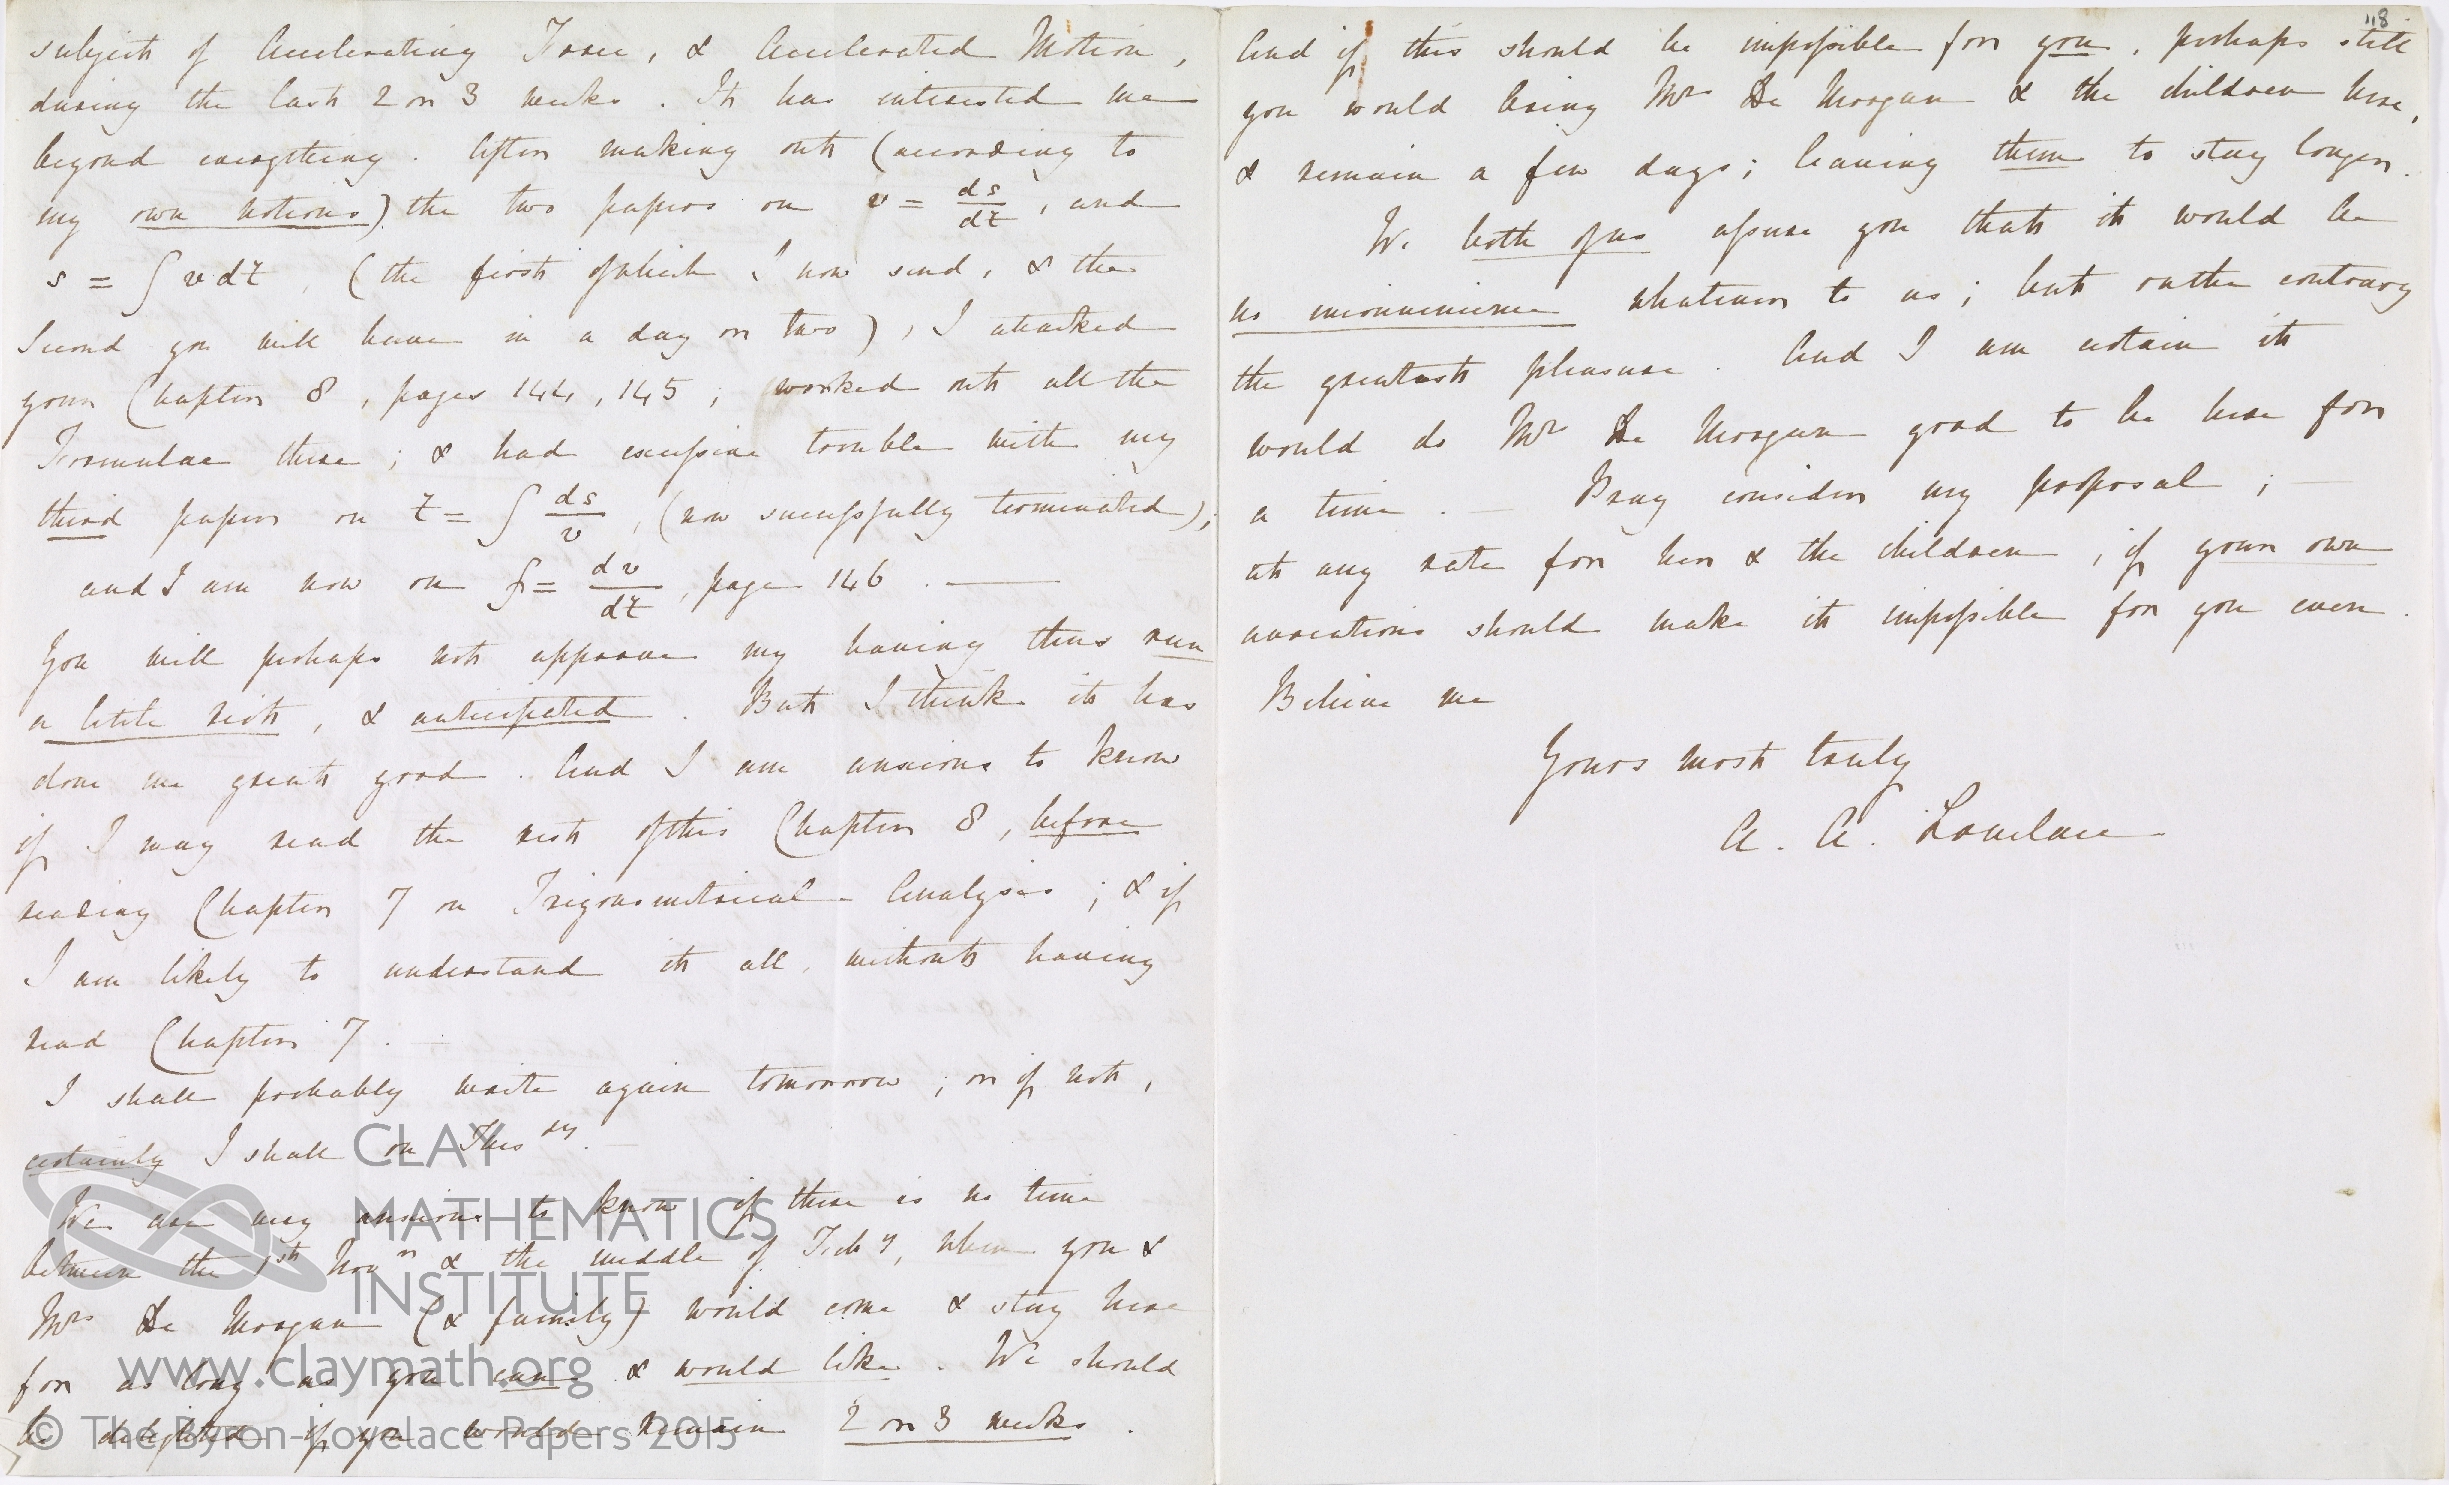 subject of Accelerating Force, & Accelerated Motion,
during the last 2 or 3 weeks. It has interested me
beyond everything. After making out (according to
my own notions) the two papers on v = ds/dt, and
s = ∫ v dt, (the first of which I now send, & the
second you will have in a day or two), I attacked
your Chapter 8, pages 144, 145; worked out all the
Formulae there; & had excessive trouble with my
third paper on t = ∫ ds/v, (now successfully terminated);
and I am now on f = dv/dt, page 146. —
You will perhaps not approve my having thus run
a little riot, & anticipated. But I think it has
done me great good. And I am anxious to know
if I may read the rest of this Chapter 8, before
reading Chapter 7 on Trigonometrical Analysis; & if
I am likely to understand it all, without having
read Chapter 7. —
I shall probably write again tomorrow; or if not,
certainly I shall on Thursdy. —
We are very anxious to know if there is no time
between the 1st Novr & the middle of Feby, when you &
Mrs De Morgan (& family) would come & stay here
for as long as you can & would like. We should
be delighted if you would remain 2 or 3 weeks.
118
And if this should be impossible for you, perhaps still
you would bring Mrs De Morgan & the children here,
& remain a few days; leaving them to stay longer.
We both of us assure you that it would be
no inconvenience whatever to us; but rather contrary
the greatest pleasure. And I am certain it
would do Mrs De Morgan good to be here for
a time. — Pray consider my proposal;
at any rate for her & the children, if your own
avocations should make it impossible for you even.
Believe me
Yours most truly
A. A. Lovelace
CLAY
MATHEMATICS
INSTITUTE
www.claymath.org
© The Byron-Lovelace Papers 2015